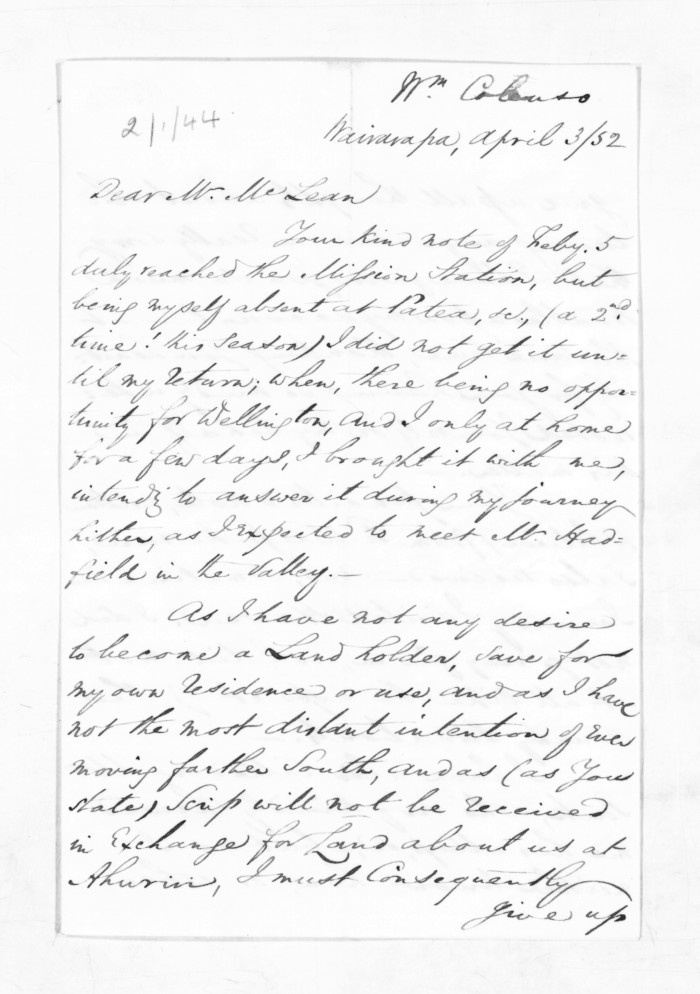 Wm Colenso
2/1/44
Wairarapa, April 3/52
Dear Mr. McLean
Your kind note of Feby. 5
duly reached the Mission Station, but
being myself absent at Patea, &c., (a 2nd.
time this season) I did not get it un=
til my return; when, there being no oppor=
tunity for Wellington, and I only at home
for a few days, I brought it with me,
intendg to answer it during my journey
hither, as I expected to meet Mr. Had=
field in the Valley.—
As I have not any desire
to become a Land holder, save for
my own residence or use, and as I have
not the most distant intention of ever
moving farther South, and as (as you
state) Scrip will not be received
in Exchange for Land about us at
Ahuriri, I must Consequently
give up